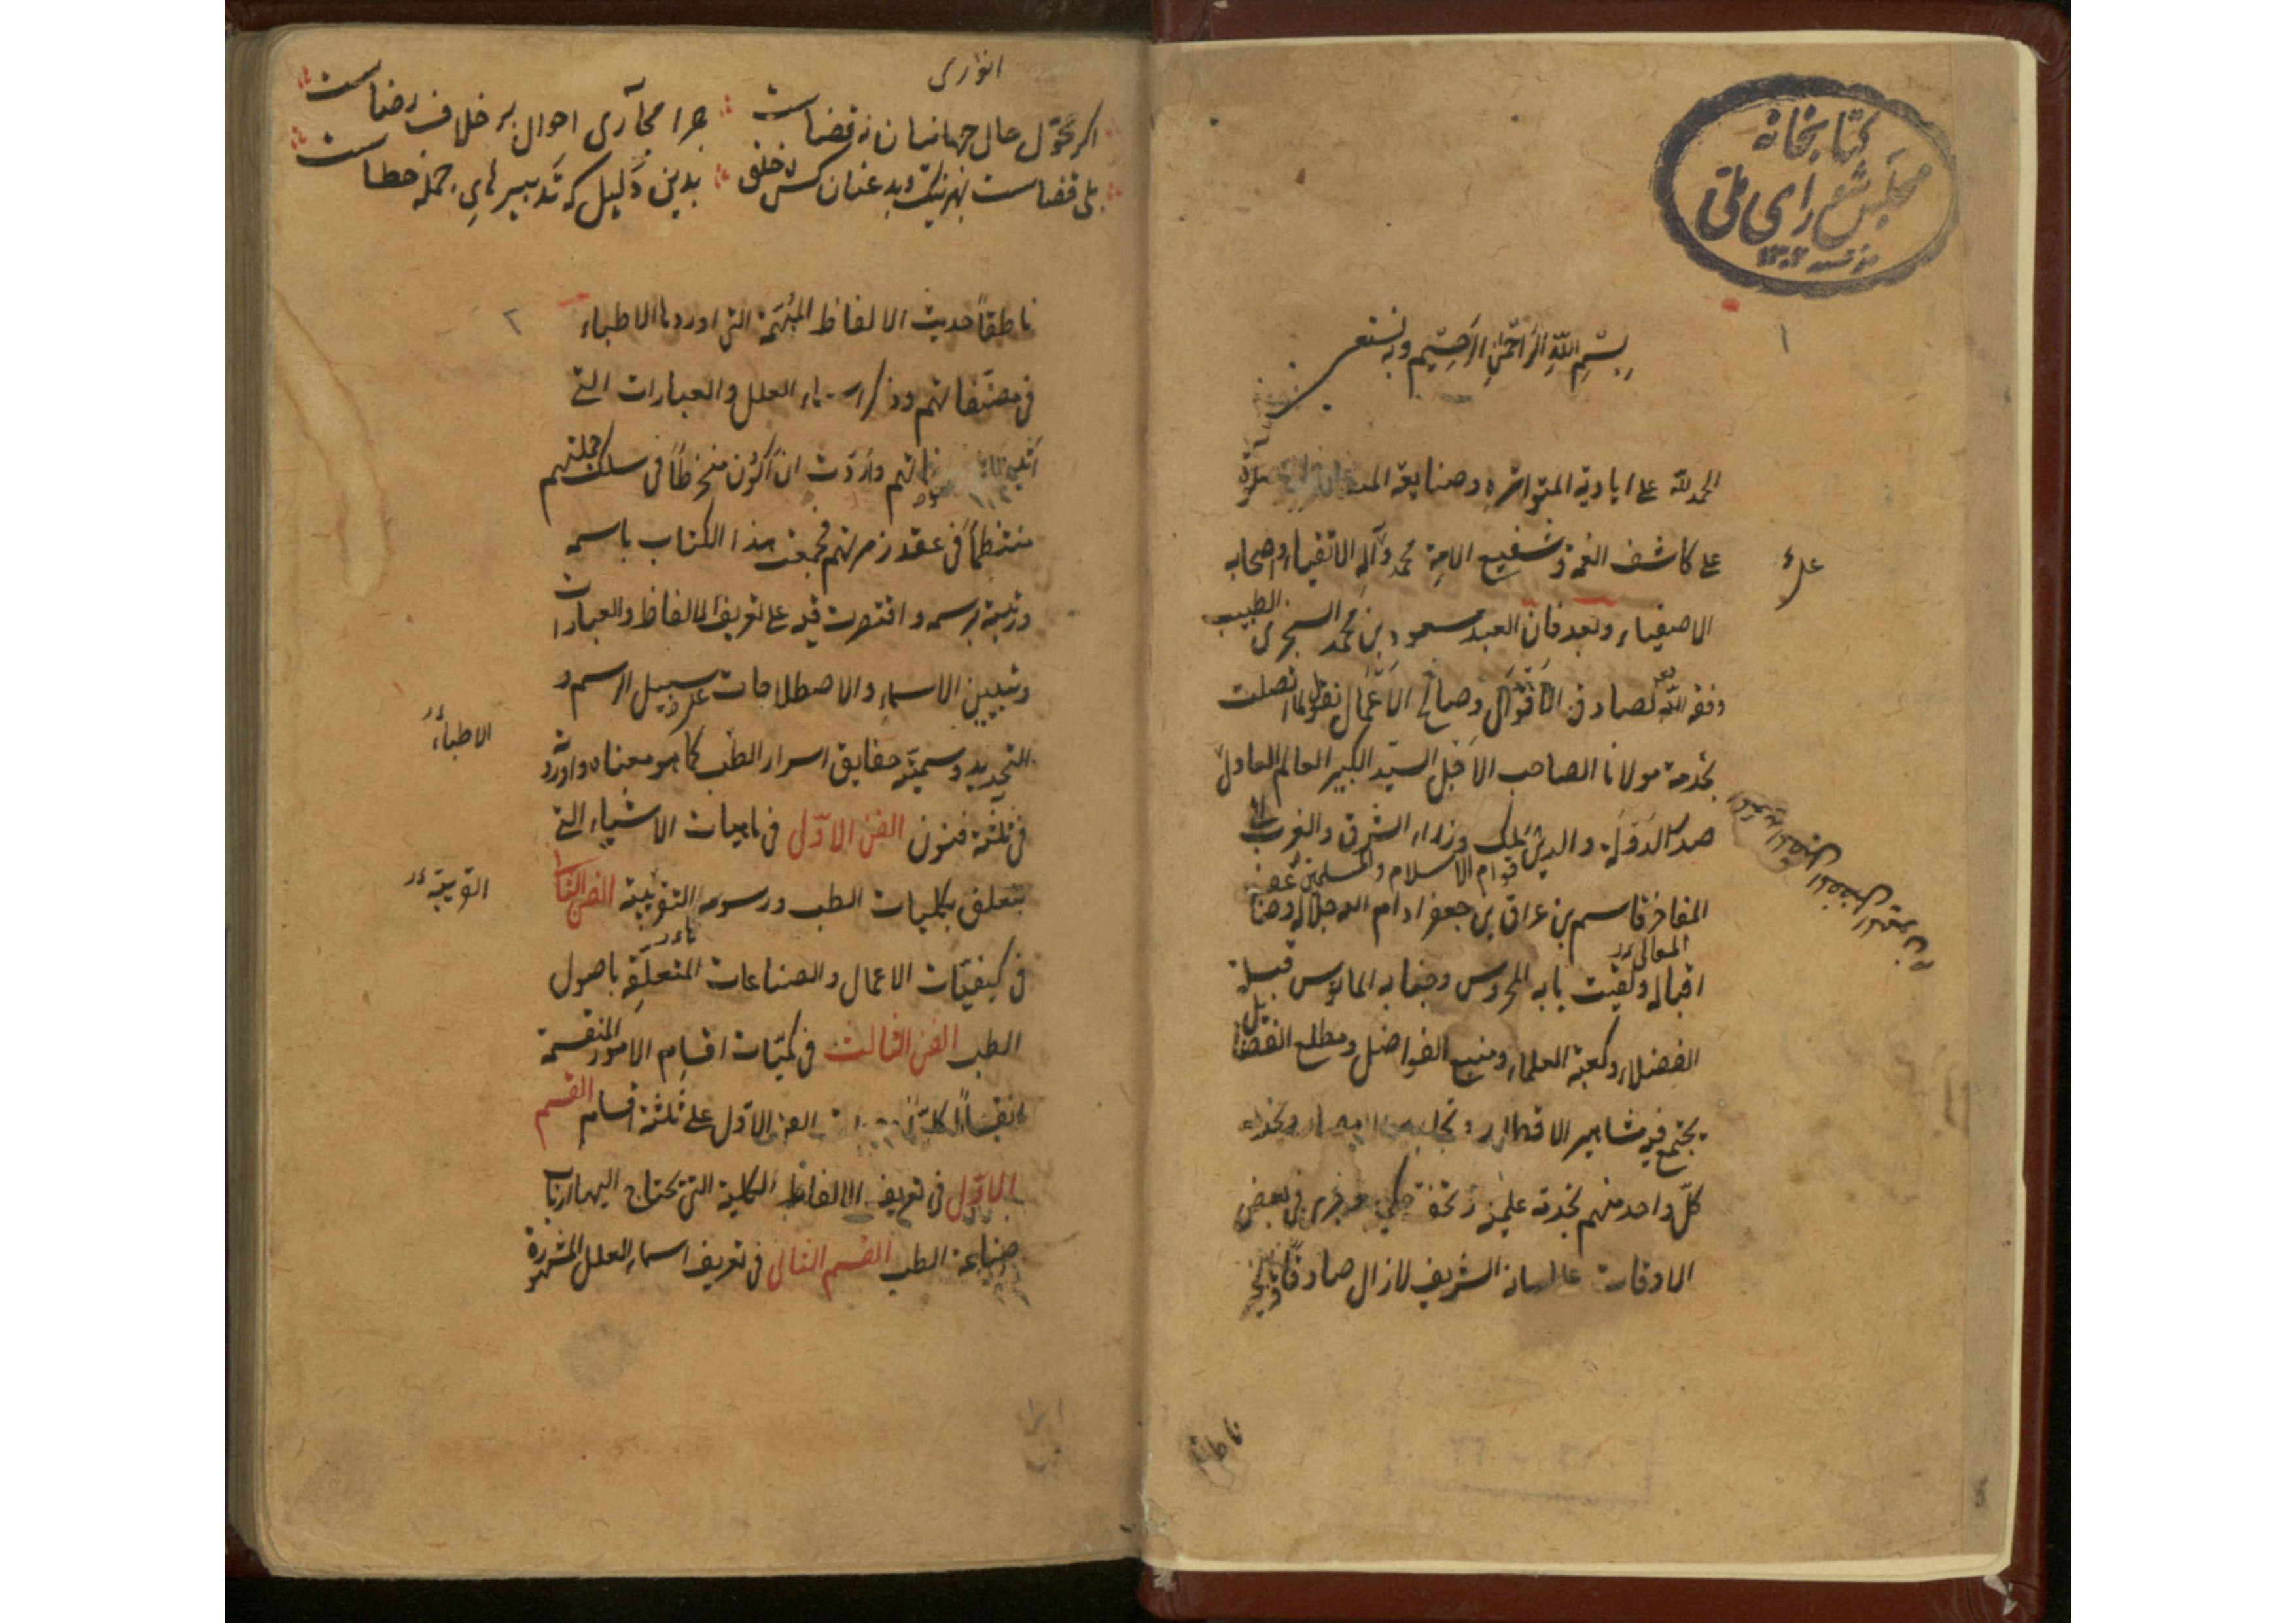 كتابخانه
مجلس شورای ملی
١
بسم الله الرحمن الرحيم وبه نستعين
الحمد لله على اياديه المتواتره وصنايعه
على كاشف الغمة وشفيع الامة محمد وآله الاتقياء واصحابه
الاصفياء وبعد فان العبد مسعود بن محمد السجزى الطبيب
وفقه الله لصادق الاقوال وصالح الاعمال يقول لما اتصلت
بخدمة مولانا الصاحب الاجل السيد الكبير العالم العادل
صدر الدولة والدين ملك وزراء الشرق والغرب
قوام الاسلام والمسلمين
المفاخر قاسم بن عراق بن جعفر ادام الله جلاله وضاعف
المعالى
اقباله ولقيت بابه المحروس وجنابه المانوس قبلة
الفضلاء وكعبة العلماء ومنبع الفواضل ومطلع الفضايل
يجتمع فيه مشاهير الاقطار
كل واحد منهم بخدمة علمية وتحفة حكمية وجرى فى بعض
الاوقات على لسانه الشريف لازال صادقا
ناطقا
انورى
اگر محول حال جهانیان نه قضاست چرا مجاری احوال بر خلاف رضاست
بلی قضاست بهر نیک و بد عنان کش خلق بدین دلیل که تدبیرهای جمله خطاست
٢
ناطقا حديث الالفاظ المبهمة التى اوردها الاطباء
فى مصنفاتهم وذكر اسماء العلل والعبارات التى
واردت ان اكون منخرطا فى سلك جملتهم
منتظما فى عقد زمرتهم فجمعت هذا الكتاب باسمه
ورتبته برسمه واقتصرت فيه على تعريف الالفاظ والعبارات
وتبيين الاسماء والاصطلاحات على سبيل الرسم و
الاطباء
التحديد وسميته حقايق اسرار الطب كما هو معناه واوردته
فى ثلثة فنون الفن الاول فى ماهيات الاشياء التى
يتعلق بكليات الطب ورسومه القريبة الفن الثانى
القريبة
فى كيفيات الاعمال والصناعات المتعلقة باصول
الطب الفن الثالث فى كميات اقسام الامور المنقسمة
انقساما كليا الفن الاول على ثلثة اقسام القسم
الاول فى تعريف الالفاظ الكلية التى يحتاج اليها ارباب
صناعة الطب القسم الثانى فى تعريف اسماء العلل المشهورة